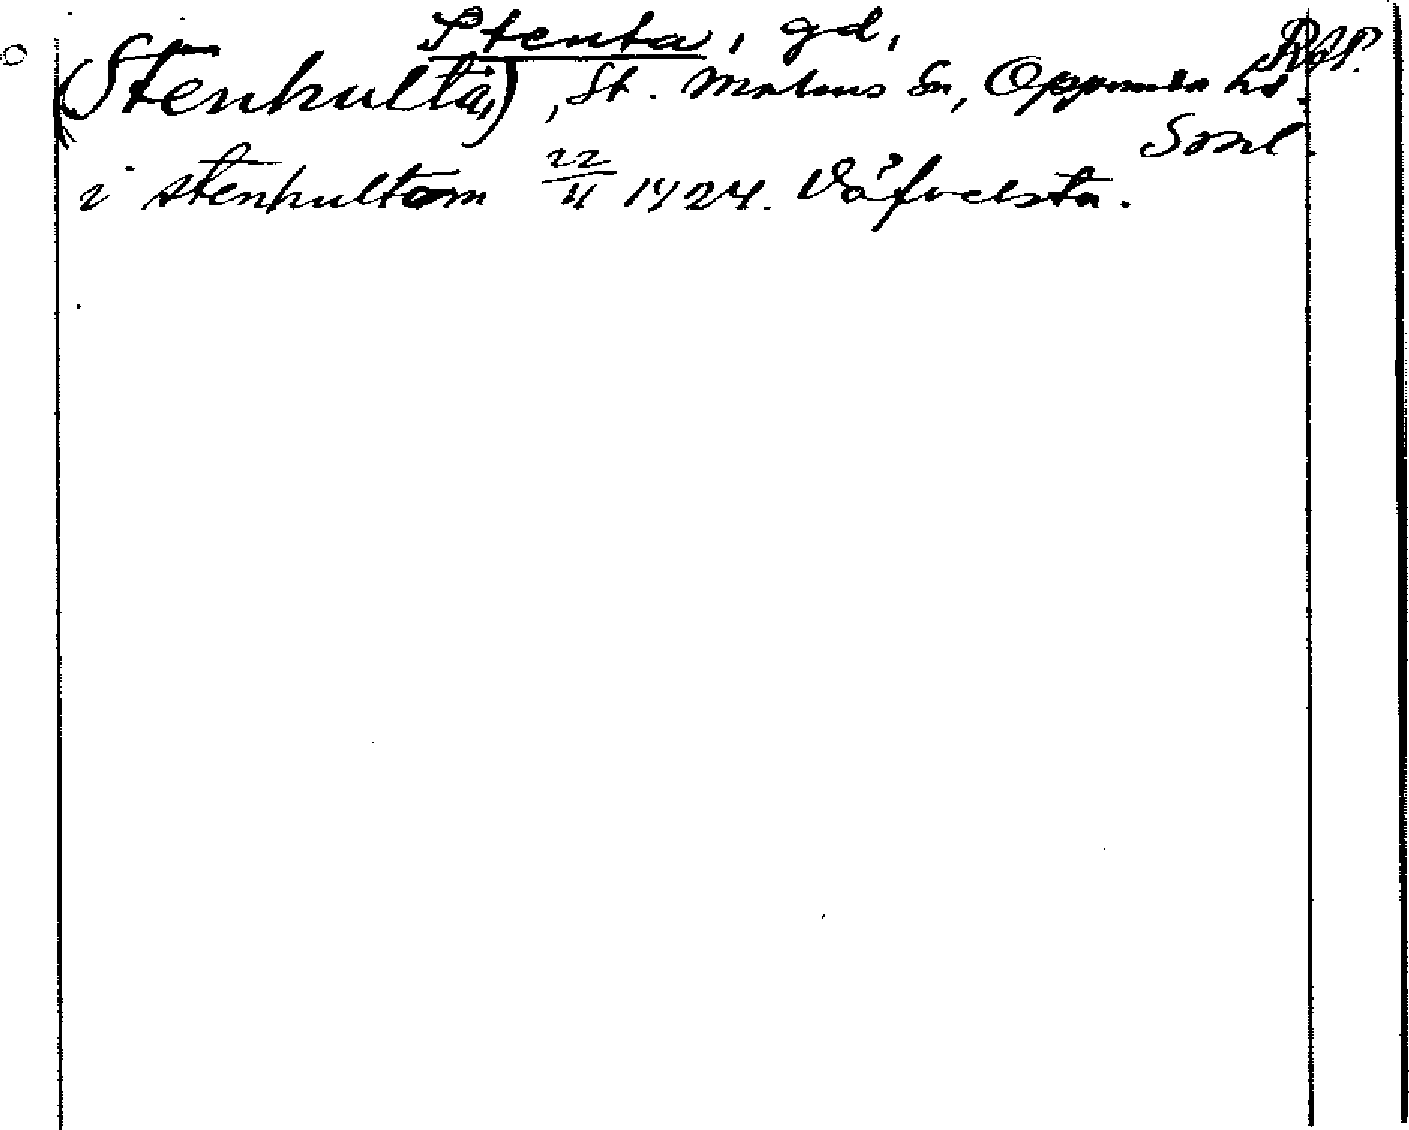 Stenta, gd,
(Stenhulta), St. Malms Sn, Oppunda hd.
Söml
i stenhultom 22/11 1424. Våfvelsta.